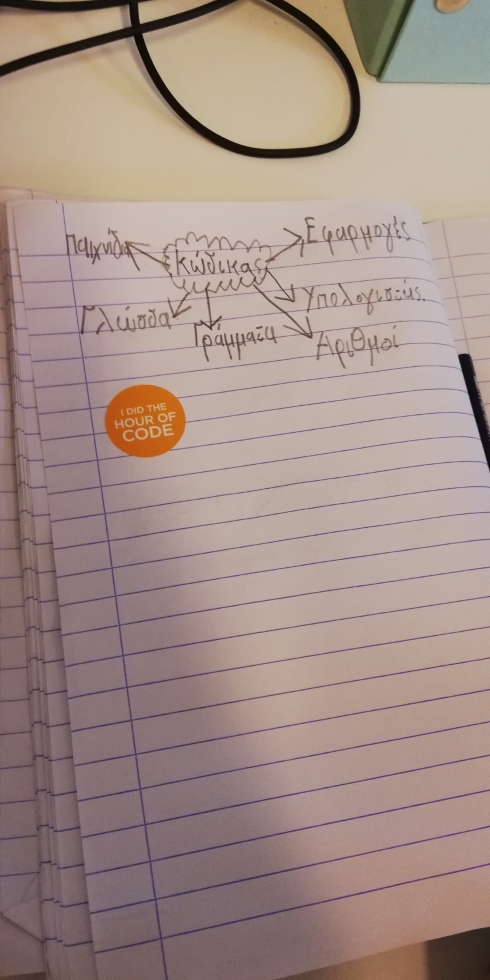 Παιχνίδια
Κώδικας
Εφαρμογές
Γλώσσα
Γράμματα
Υπολογιστής.
Αριθμοί
I DID THE
HOUR OF
CODE